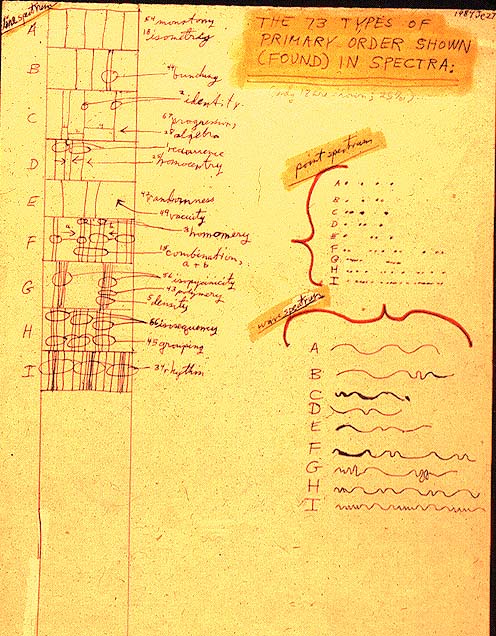 line spectrum
1984 Jc27
THE 73 TYPES OF
PRIMARY ORDER SHOWN
(FOUND) IN SPECTRA:
A
54 monotony
18 isometry
B
bunching
C
2 identity
progression,
algebra
D
recurrence
homocentry
E
randomness
vacuity
F
homomery
combination,
a + b
G
isopyanicity
polymery
5 density
H
isosequency
45 grouping
I
34 rhythm
point spectrum
A
B
C
D
E
F
G
H
I
wave spectrum
A
B
C
D
E
F
G
H
I